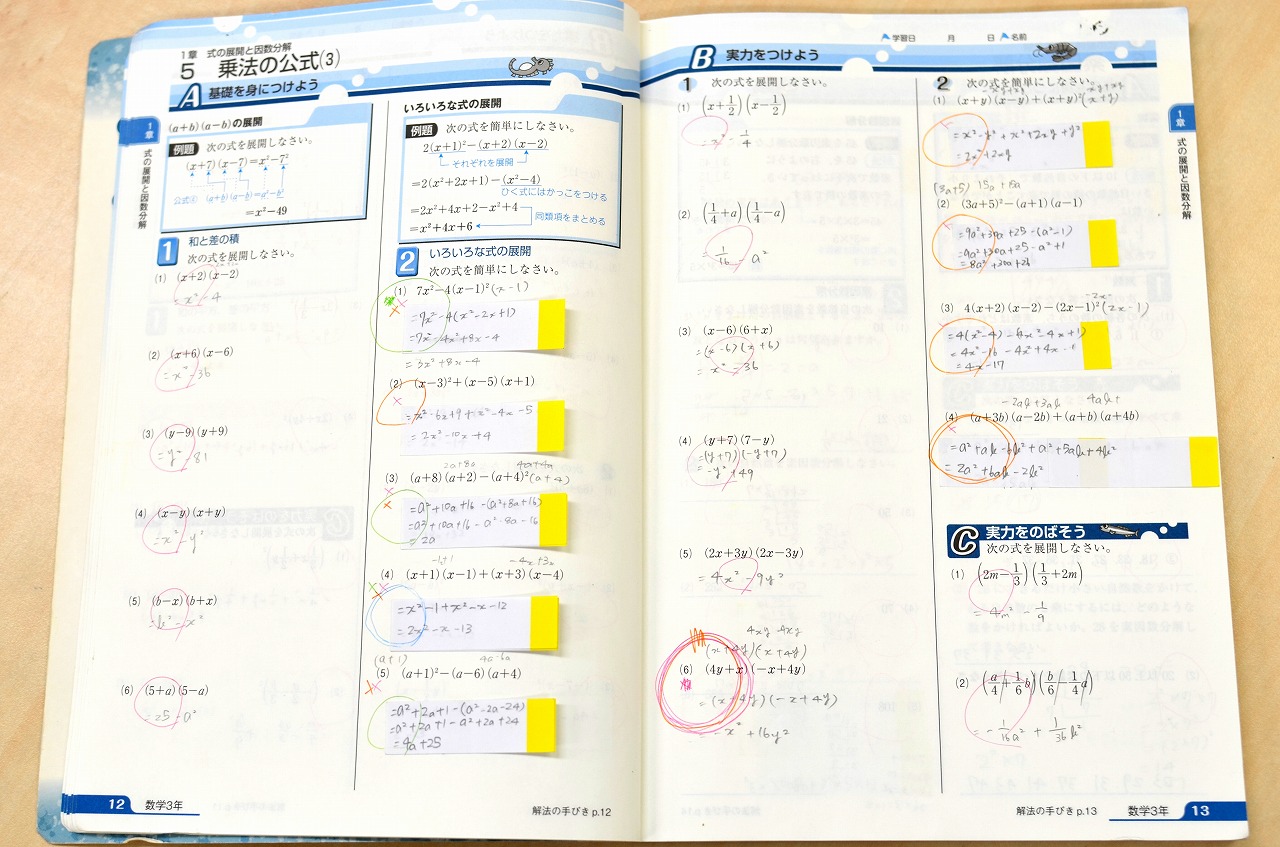 1章 式の展開と因数分解
5 乗法の公式(3)
A 基礎を身につけよう
(a+b)(a−b)の展開
例題 次の式を展開しなさい。
(x+7)(x−7)=x²−7²
公式④ (a+b)(a−b)=a²−b²
=x²−49
1 和と差の積
次の式を展開しなさい。
(1) (x+2)(x−2)
=x²−4
(2) (x+6)(x−6)
=x²−36
(3) (y−9)(y+9)
=y²−81
(4) (x−y)(x+y)
=x²−y²
(5) (b−x)(b+x)
=b²−x²
(6) (5+a)(5−a)
=25−a²
1章
式の展開と因数分解
いろいろな式の展開
例題 次の式を簡単にしなさい。
2(x+1)²−(x+2)(x−2)
それぞれを展開
=2(x²+2x+1)−(x²−4)
ひく式にはかっこをつける
=2x²+4x+2−x²+4
同類項をまとめる
=x²+4x+6
2 いろいろな式の展開
次の式を簡単にしなさい。
(1) 7x²−4(x−1)²(x−1)
=7x²−4(x²−2x+1)
=7x²−4x²+8x−4
=3x²+8x−4
(2) (x−3)²+(x−5)(x+1)
=x²−6x+9+x²−4x−5
=2x²−10x+4
2a+8a 4a+4a
(3) (a+8)(a+2)−(a+4)²(a+4)
=a²+10a+16−(a²+8a+16)
=a²+10a+16−a²−8a−16
=2a
(4) (x+1)(x−1)+(x+3)(x−4)
=x²−1+x²−x−12
=2x²−x−13
(a+1)
(5) (a+1)²−(a−6)(a+4)
=a²+2a+1−(a²−2a−24)
=a²+2a+1−a²+2a+24
=4a+25
12 数学3年
解法の手びき p.12
学習日 月 日 名前
B 実力をつけよう
1 次の式を展開しなさい。
(1) (x+1/2)(x−1/2)
=x²−1/4
(2) (1/4+a)(1/4−a)
=1/16−a²
(3) (x−6)(6+x)
=(x−6)(x+6)
=x²−36
(4) (y+7)(7−y)
=(y+7)(−y+7)
=−y²+49
(5) (2x+3y)(2x−3y)
=4x²−9y²
4xy 4xy
(x+4y)(x+4y)
(6) (4y+x)(−x+4y)
=(x+4y)(−x+4y)
=−x²+16y²
2 次の式を簡単にしなさい。
(1) (x+y)(x−y)+(x+y)²(x+y)
=x²−y²+x²+2xy+y²
=2x²+2xy
(3a+5) 15a+15a
(2) (3a+5)²−(a+1)(a−1)
=9a²+30a+25−(a²−1)
=9a²+30a+25−a²+1
=8a²+30a+26
(3) 4(x+2)(x−2)−(2x−1)²(2x−1)
=4(x²−4)−4x²−4x+1)
=4x²−16−4x²+4x−1
=4x−17
−2ab+3ab 4ab+
(4) (a+3b)(a−2b)+(a+b)(a+4b)
=a²+ab−6b²+a²+5ab+4b²
=2a²+6ab−2b²
C 実力をのばそう
次の式を展開しなさい。
(1) (2m−1/3)(1/3+2m)
=4m²−1/9
(2) (a/4+1/6b)(b/6−1/4a)
=−1/16a²+1/36b²
1章
式の展開と因数分解
解法の手びき p.13
数学3年 13